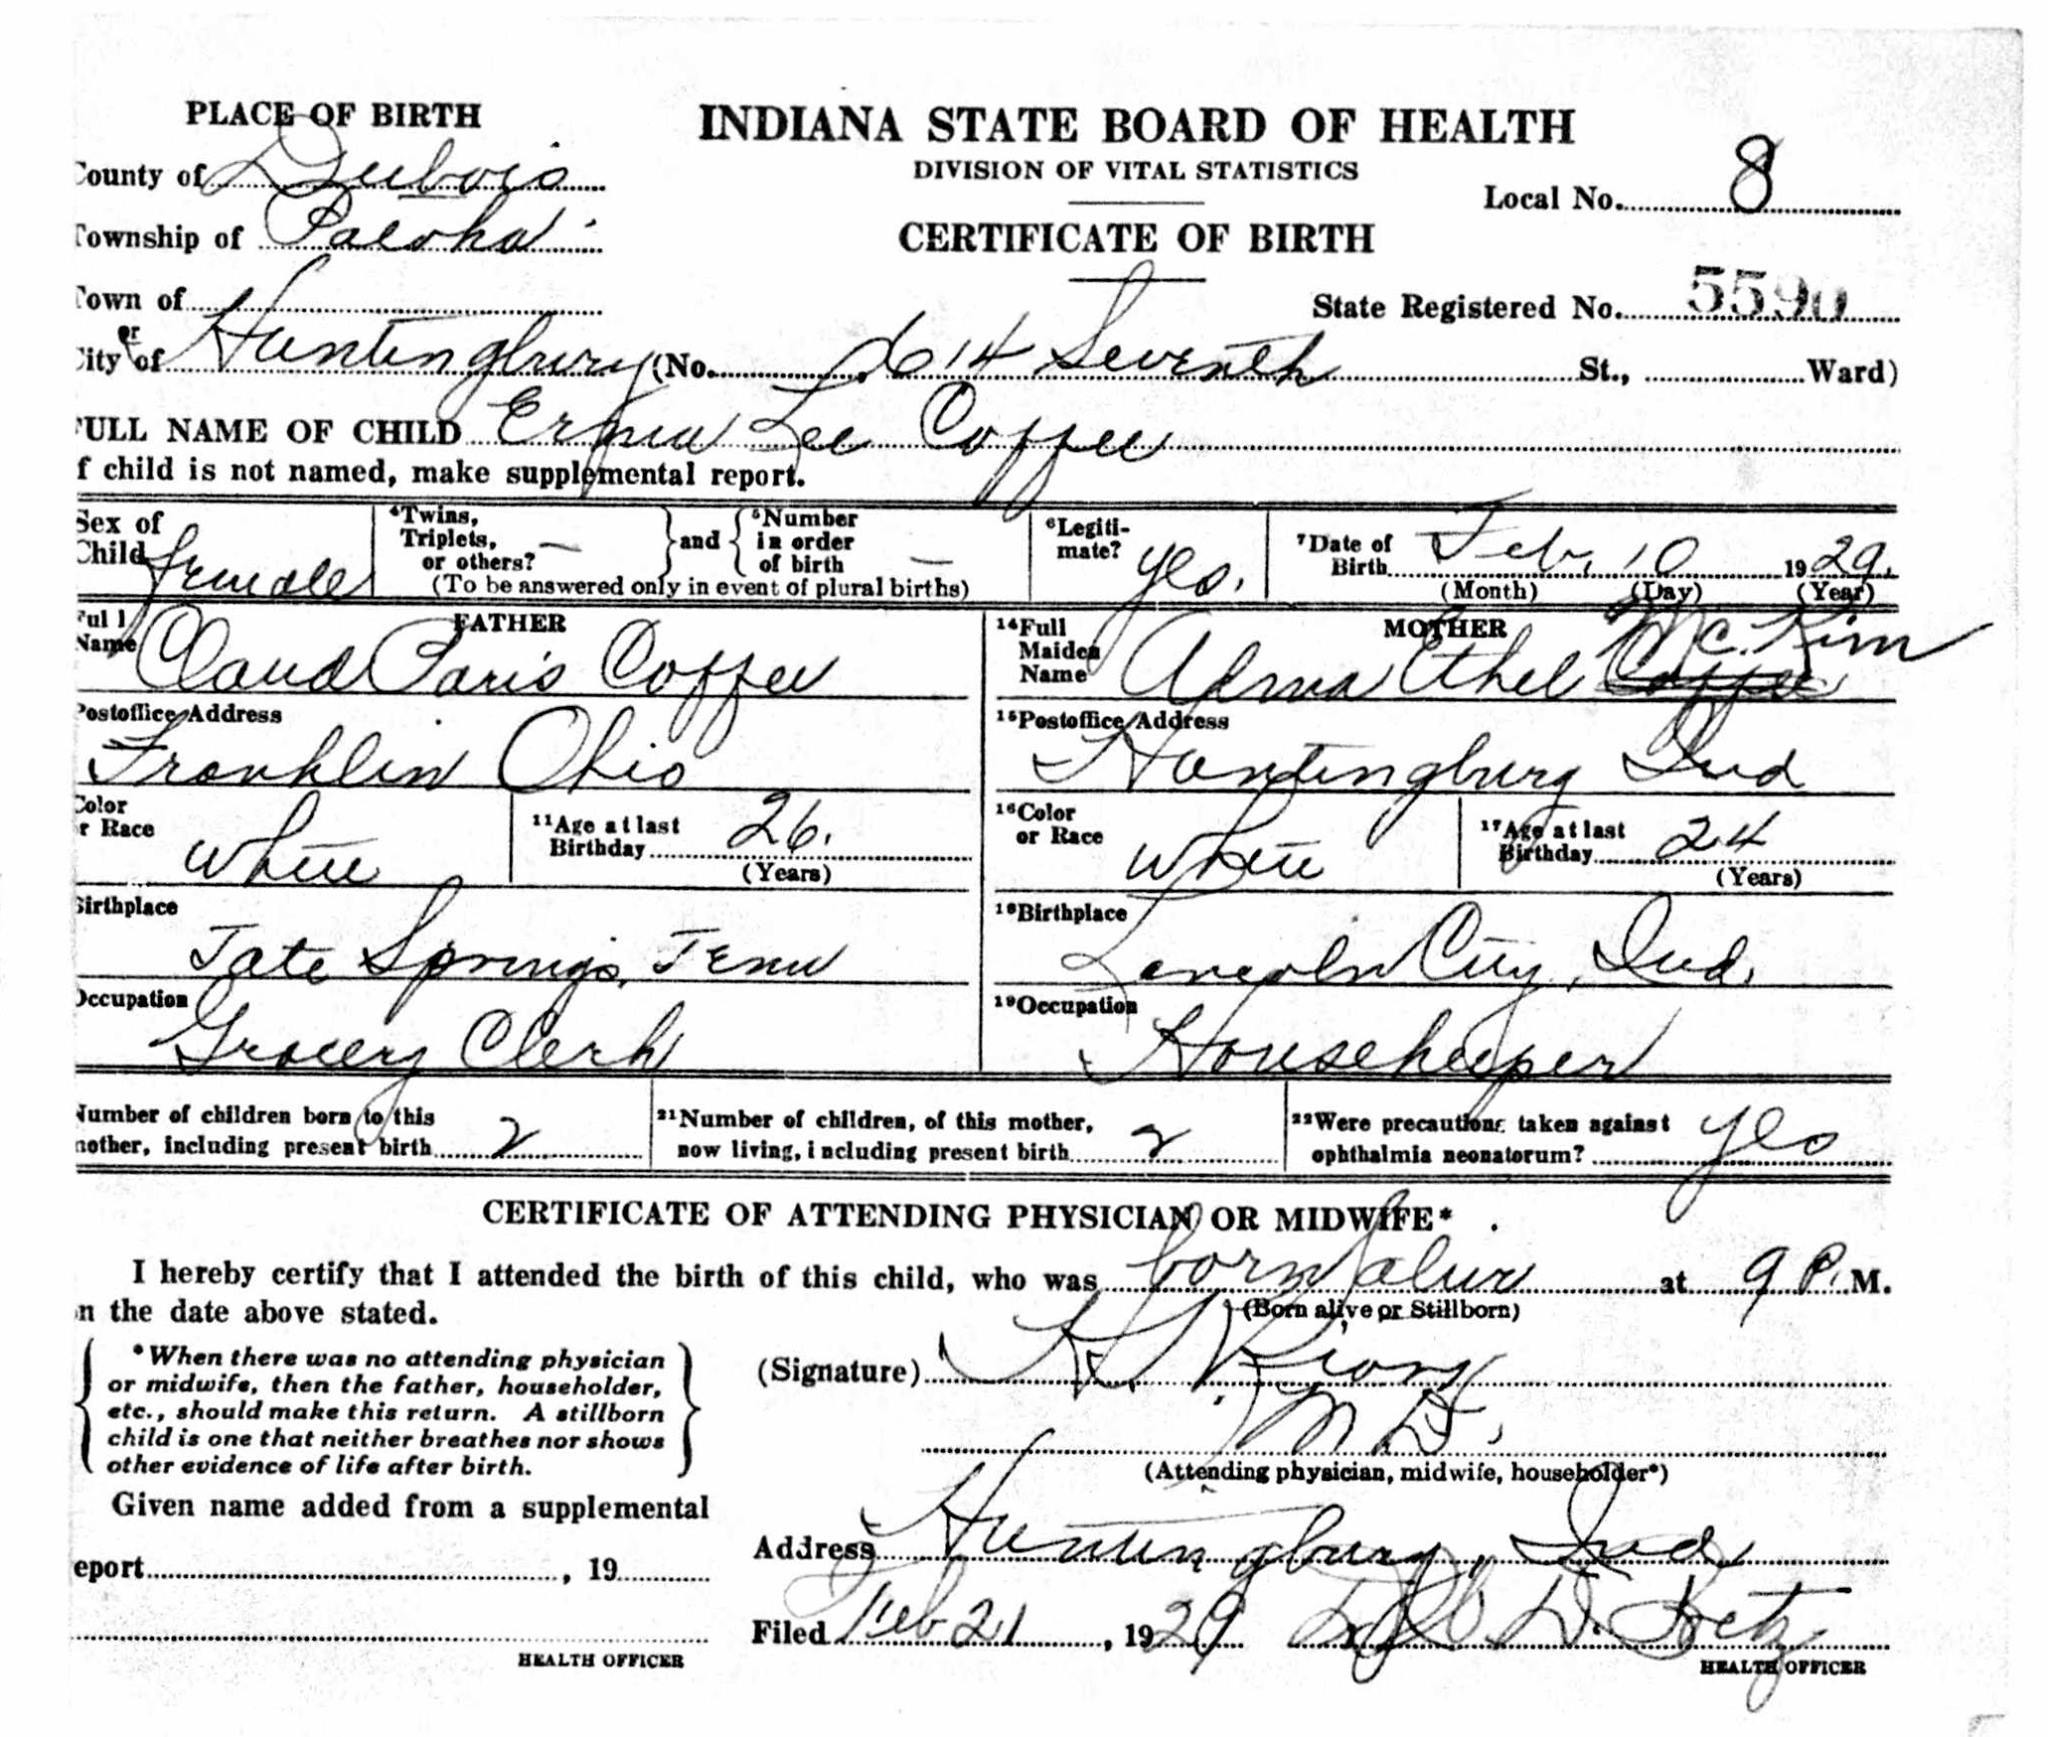 PLACE OF BIRTH
County of Dubois
Township of Patoka
Town of
or
City of Huntingburg (No. 614 Seventh St., Ward)
INDIANA STATE BOARD OF HEALTH
DIVISION OF VITAL STATISTICS
CERTIFICATE OF BIRTH
Local No. 8
State Registered No. 5590
FULL NAME OF CHILD Lee Coffee
If child is not named, make supplemental report.
Sex of Child female
4 Twins, Triplets, or others? — and 5 Number in order of birth —
(To be answered only in event of plural births)
6 Legitimate? yes.
7 Date of Birth Feb. 10 1929.
(Month) (Day) (Year)
FATHER
Full Name Claud Paris Coffee
Postoffice Address
Franklin Ohio
Color or Race White
11 Age at last Birthday 26.
(Years)
Birthplace
Tate Springs, Tenn
Occupation
Grocery Clerk
MOTHER
14 Full Maiden Name Alma Ethel Coffee McKim
15 Postoffice Address
Huntingburg Ind
16 Color or Race White
17 Age at last Birthday 24
(Years)
18 Birthplace
Lincoln City, Ind.
19 Occupation
Housekeeper
Number of children born to this mother, including present birth 2
21 Number of children, of this mother, now living, including present birth 2
22 Were precautions taken against ophthalmia neonatorum? yes
CERTIFICATE OF ATTENDING PHYSICIAN OR MIDWIFE*
I hereby certify that I attended the birth of this child, who was born alive at 9 P. M.
(Born alive or Stillborn)
on the date above stated.
*When there was no attending physician
or midwife, then the father, householder,
etc., should make this return. A stillborn
child is one that neither breathes nor shows
other evidence of life after birth.
Given name added from a supplemental
report , 19
HEALTH OFFICER
(Signature)
M D.
(Attending physician, midwife, householder*)
Address Huntingburg, Ind.
Filed Feb 21, 1929
HEALTH OFFICER